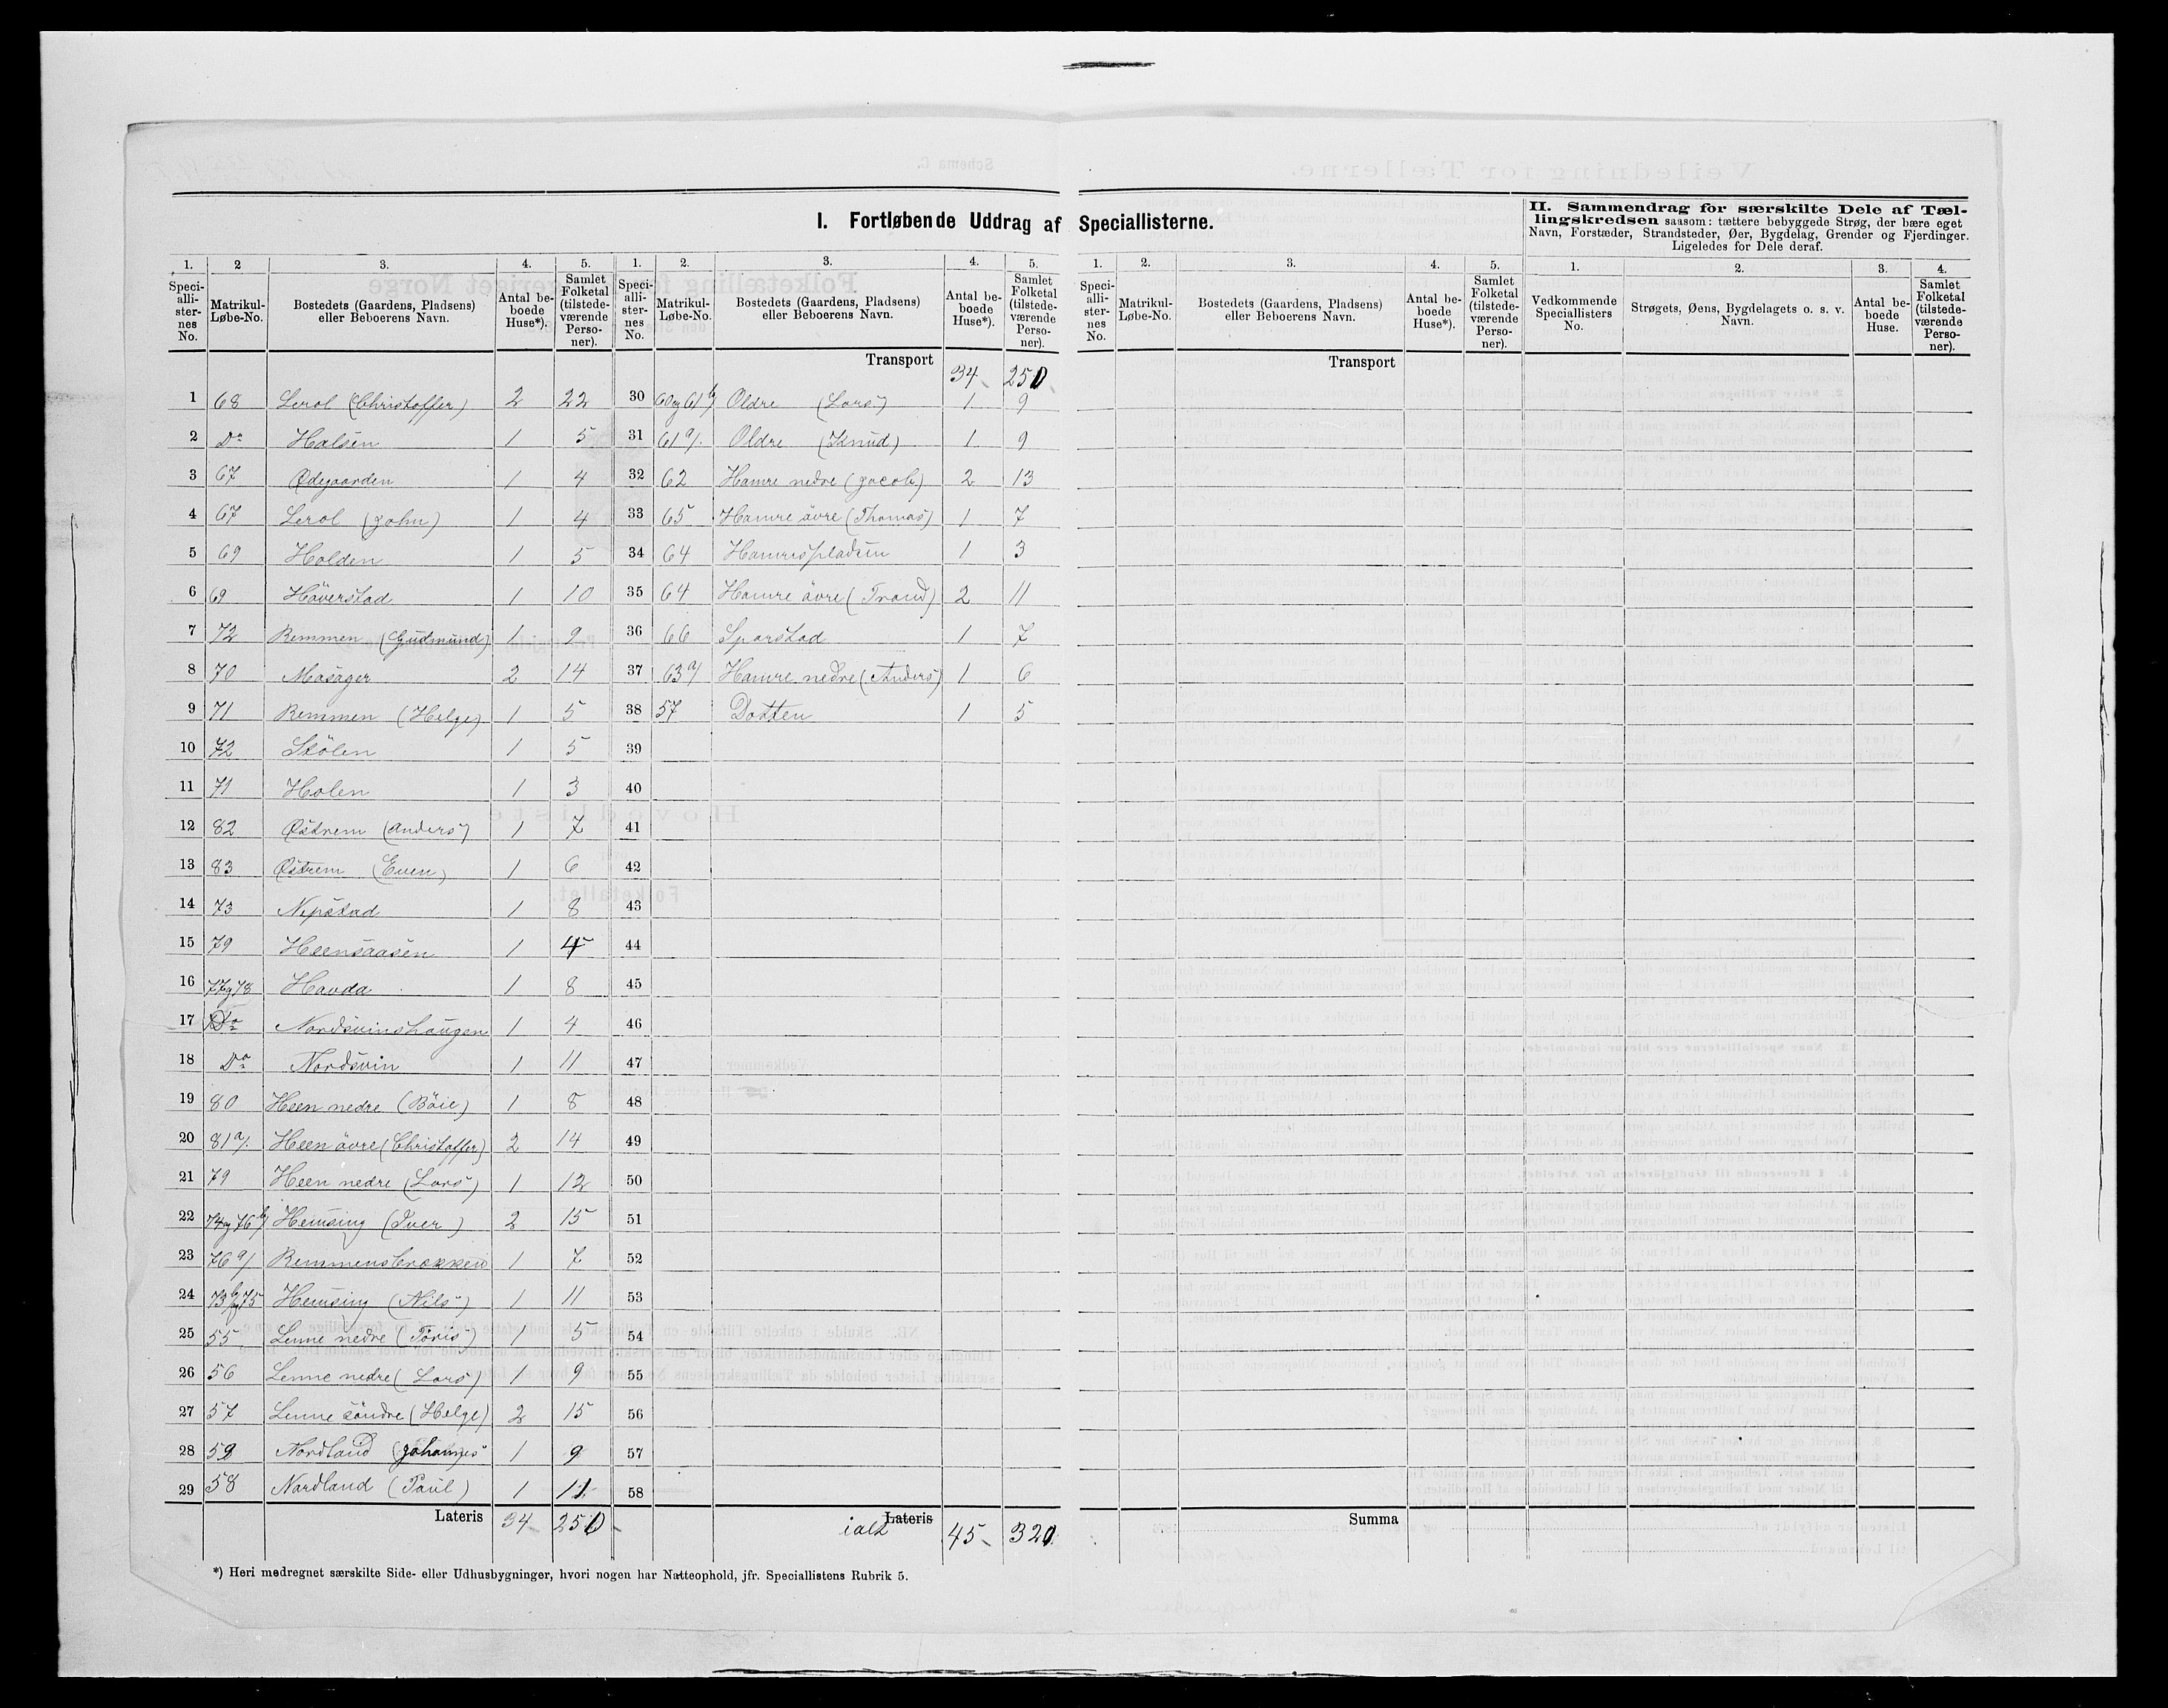 I. Fortløbende Uddrag af Speciallisterne.
II. Sammendrag for særskilte Dele af Tæl-
lingskredsen saasom: tættere bebyggede Strøg, der bære eget
Navn, Forstæder, Strandsteder, Øer, Bygdelag, Grender og Fjerdinger.
Ligeledes for Dele deraf.
1. 2 3. 4. 5. 1. 2. 3. 4. 5. 1. 2. 3. 4. 5. 1. 2. 3. 4.
Speci-alli-ster-nes No. Matrikul-Løbe-No. Bostedets (Gaardens, Pladsens) eller Beboerens Navn. Antal be-boede Huse*). Samlet Folketal (tilstede-værende Perso-ner).
Speci-alli-ster-nes No. Matrikul-Løbe-No. Bostedets (Gaardens, Pladsens) eller Beboerens Navn. Antal be-boede Huse*). Samlet Folketal (tilstede-værende Perso-ner).
Speci-alli-ster-nes No. Matrikul-Løbe-No. Bostedets (Gaardens, Pladsens) eller Beboerens Navn. Antal be-boede Huse*). Samlet Folketal (tilstede-værende Perso-ner).
Vedkommende Speciallisters No. Strøgets, Øens, Bygdelagets o. s. v. Navn. Antal be-boede Huse. Samlet Folketal (tilstede-værende Perso-ner).
1 68 Lerol (Christoffer) 2 22
2 Do Halsen 1 5
3 67 Ødegaarden 1 4
4 67 Lerol (John) 1 4
5 69 Holden 1 5
6 69 Höverstad 1 10
7 72 Remmen (Gudmund) 1 9
8 70 Masager 2 14
9 71 Remmen (Helge) 1 5
10 72 Skölen 1 5
11 71 Holen 1 3
12 82 Østrem (Anders) 1 7
13 83 Østrem (Even) 1 6
14 73 Nipstad 1 8
15 79 Heensaasen 1
16 77 og 78 Havda 1 8
17 Do Nordsvinshaugen 1 4
18 Do Nordsvin 1 11
19 80 Heen nedre (Böie) 1 8
20 81 a/. Heen övre (Christoffer) 2 14
21 79 Heen nedre (Lars) 1 12
22 74 og 76 b/ Hemsing (Iver) 2 15
23 76 a/ Remmensbrækken 1 7
24 73 b/ og 75 Hemsing (Nils) 1 11
25 55 Lenne nedre (Töris) 1 5
26 56 Lenne nedre (Lars) 1 9
27 57 Lenne söndre (Helge) 2 15
28 59 Nordland (Johannes 1 9
29 58 Nordland (Paul) 1 11
Lateris 34 250
Transport 34 250
30 60 og 61 b/ Oldre (Lars) 1 9
31 61 a/. Oldre (Knud) 1 9
32 62 Hamre nedre (Jacob) 2 13
33 65 Hamre övre (Thomas) 1 7
34 64 Hamrespladsen 1 3
35 64 Hamre övre (Trond) 2 11
36 66 Sparstad 1 7
37 63 a/ Hamre nedre (Anders) 1 6
38 57 Dotten 1 5
39
40
41
42
43
44
45
46
47
48
49
50
51
52
53
54
55
56
57
58
Lateris
ialt 45 320
Transport
Summa
*) Heri medregnet særskilte Side- eller Udhusbygninger, hvori nogen har Natteophold, jfr. Speciallistens Rubrik 5.